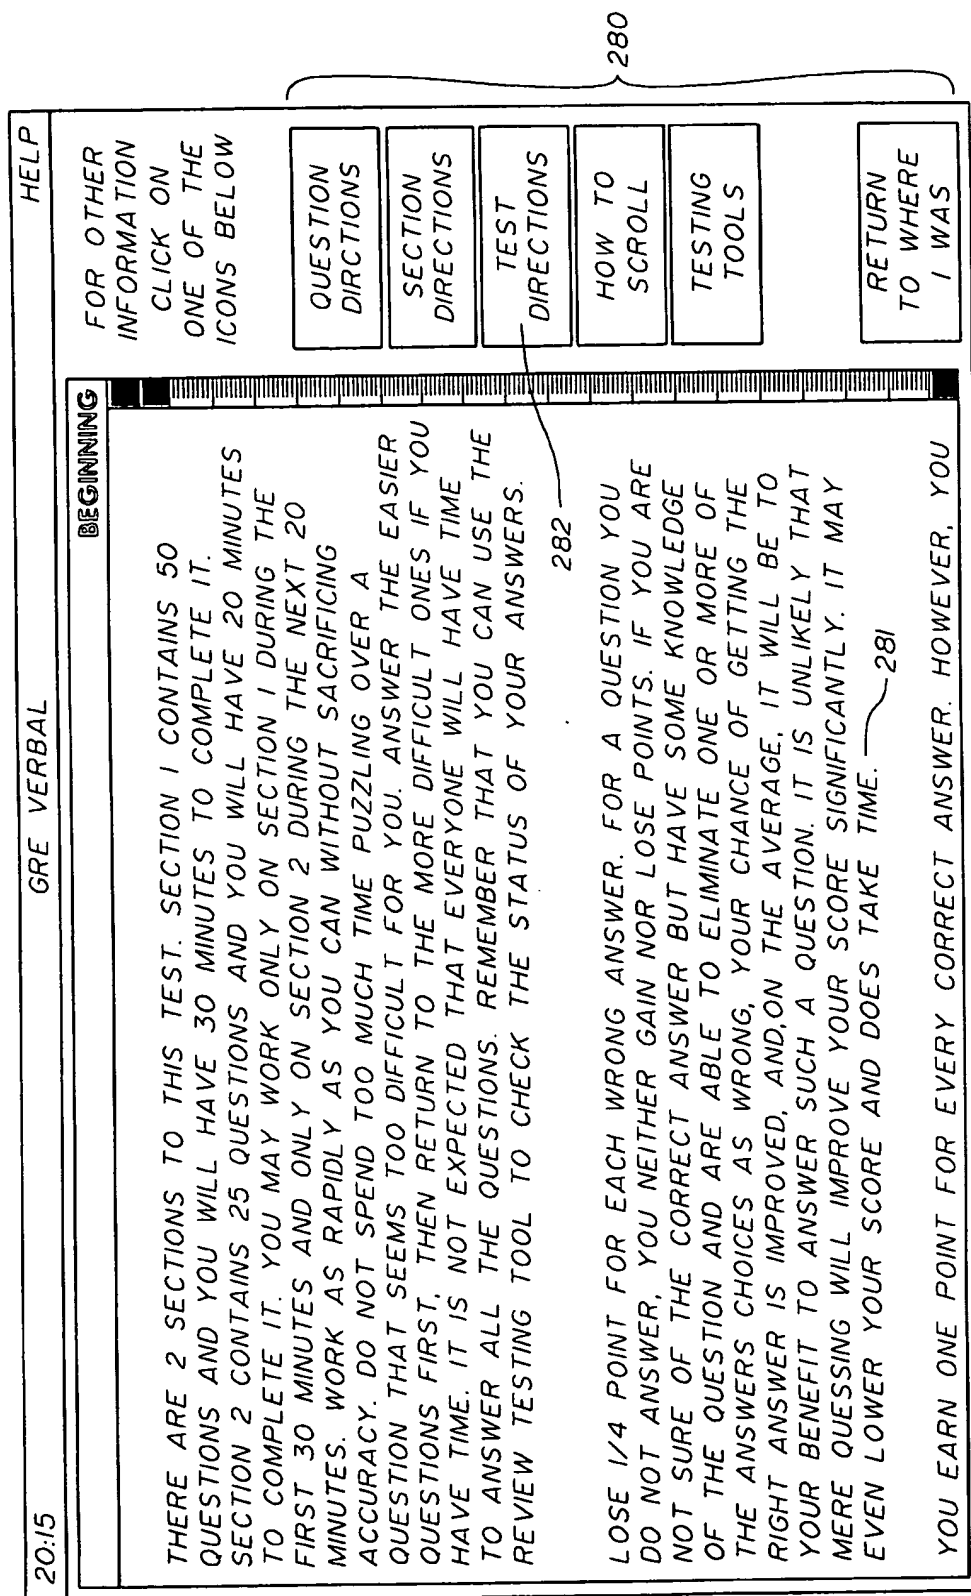 20:15
GRE VERBAL
HELP
BEGINNING
THERE ARE 2 SECTIONS TO THIS TEST. SECTION 1 CONTAINS 50
QUESTIONS AND YOU WILL HAVE 30 MINUTES TO COMPLETE IT.
SECTION 2 CONTAINS 25 QUESTIONS AND YOU WILL HAVE 20 MINUTES
TO COMPLETE IT. YOU MAY WORK ONLY ON SECTION 1 DURING THE
FIRST 30 MINUTES AND ONLY ON SECTION 2 DURING THE NEXT 20
MINUTES. WORK AS RAPIDLY AS YOU CAN WITHOUT SACRIFICING
ACCURACY. DO NOT SPEND TOO MUCH TIME PUZZLING OVER A
QUESTION THAT SEEMS TOO DIFFICULT FOR YOU. ANSWER THE EASIER
QUESTIONS FIRST, THEN RETURN TO THE MORE DIFFICULT ONES IF YOU
HAVE TIME. IT IS NOT EXPECTED THAT EVERYONE WILL HAVE TIME
TO ANSWER ALL THE QUESTIONS. REMEMBER THAT YOU CAN USE THE
REVIEW TESTING TOOL TO CHECK THE STATUS OF YOUR ANSWERS.
282
LOSE 1/4 POINT FOR EACH WRONG ANSWER. FOR A QUESTION YOU
DO NOT ANSWER, YOU NEITHER GAIN NOR LOSE POINTS. IF YOU ARE
NOT SURE OF THE CORRECT ANSWER BUT HAVE SOME KNOWLEDGE
OF THE QUESTION AND ARE ABLE TO ELIMINATE ONE OR MORE OF
THE ANSWERS CHOICES AS WRONG, YOUR CHANCE OF GETTING THE
RIGHT ANSWER IS IMPROVED, AND,ON THE AVERAGE, IT WILL BE TO
YOUR BENEFIT TO ANSWER SUCH A QUESTION. IT IS UNLIKELY THAT
MERE QUESSING WILL IMPROVE YOUR SCORE SIGNIFICANTLY. IT MAY
EVEN LOWER YOUR SCORE AND DOES TAKE TIME.
281
YOU EARN ONE POINT FOR EVERY CORRECT ANSWER. HOWEVER, YOU
FOR OTHER
INFORMATION
CLICK ON
ONE OF THE
ICONS BELOW
QUESTION
DIRCTIONS
SECTION
DIRECTIONS
TEST
DIRECTIONS
HOW TO
SCROLL
TESTING
TOOLS
RETURN
TO WHERE
I WAS
280